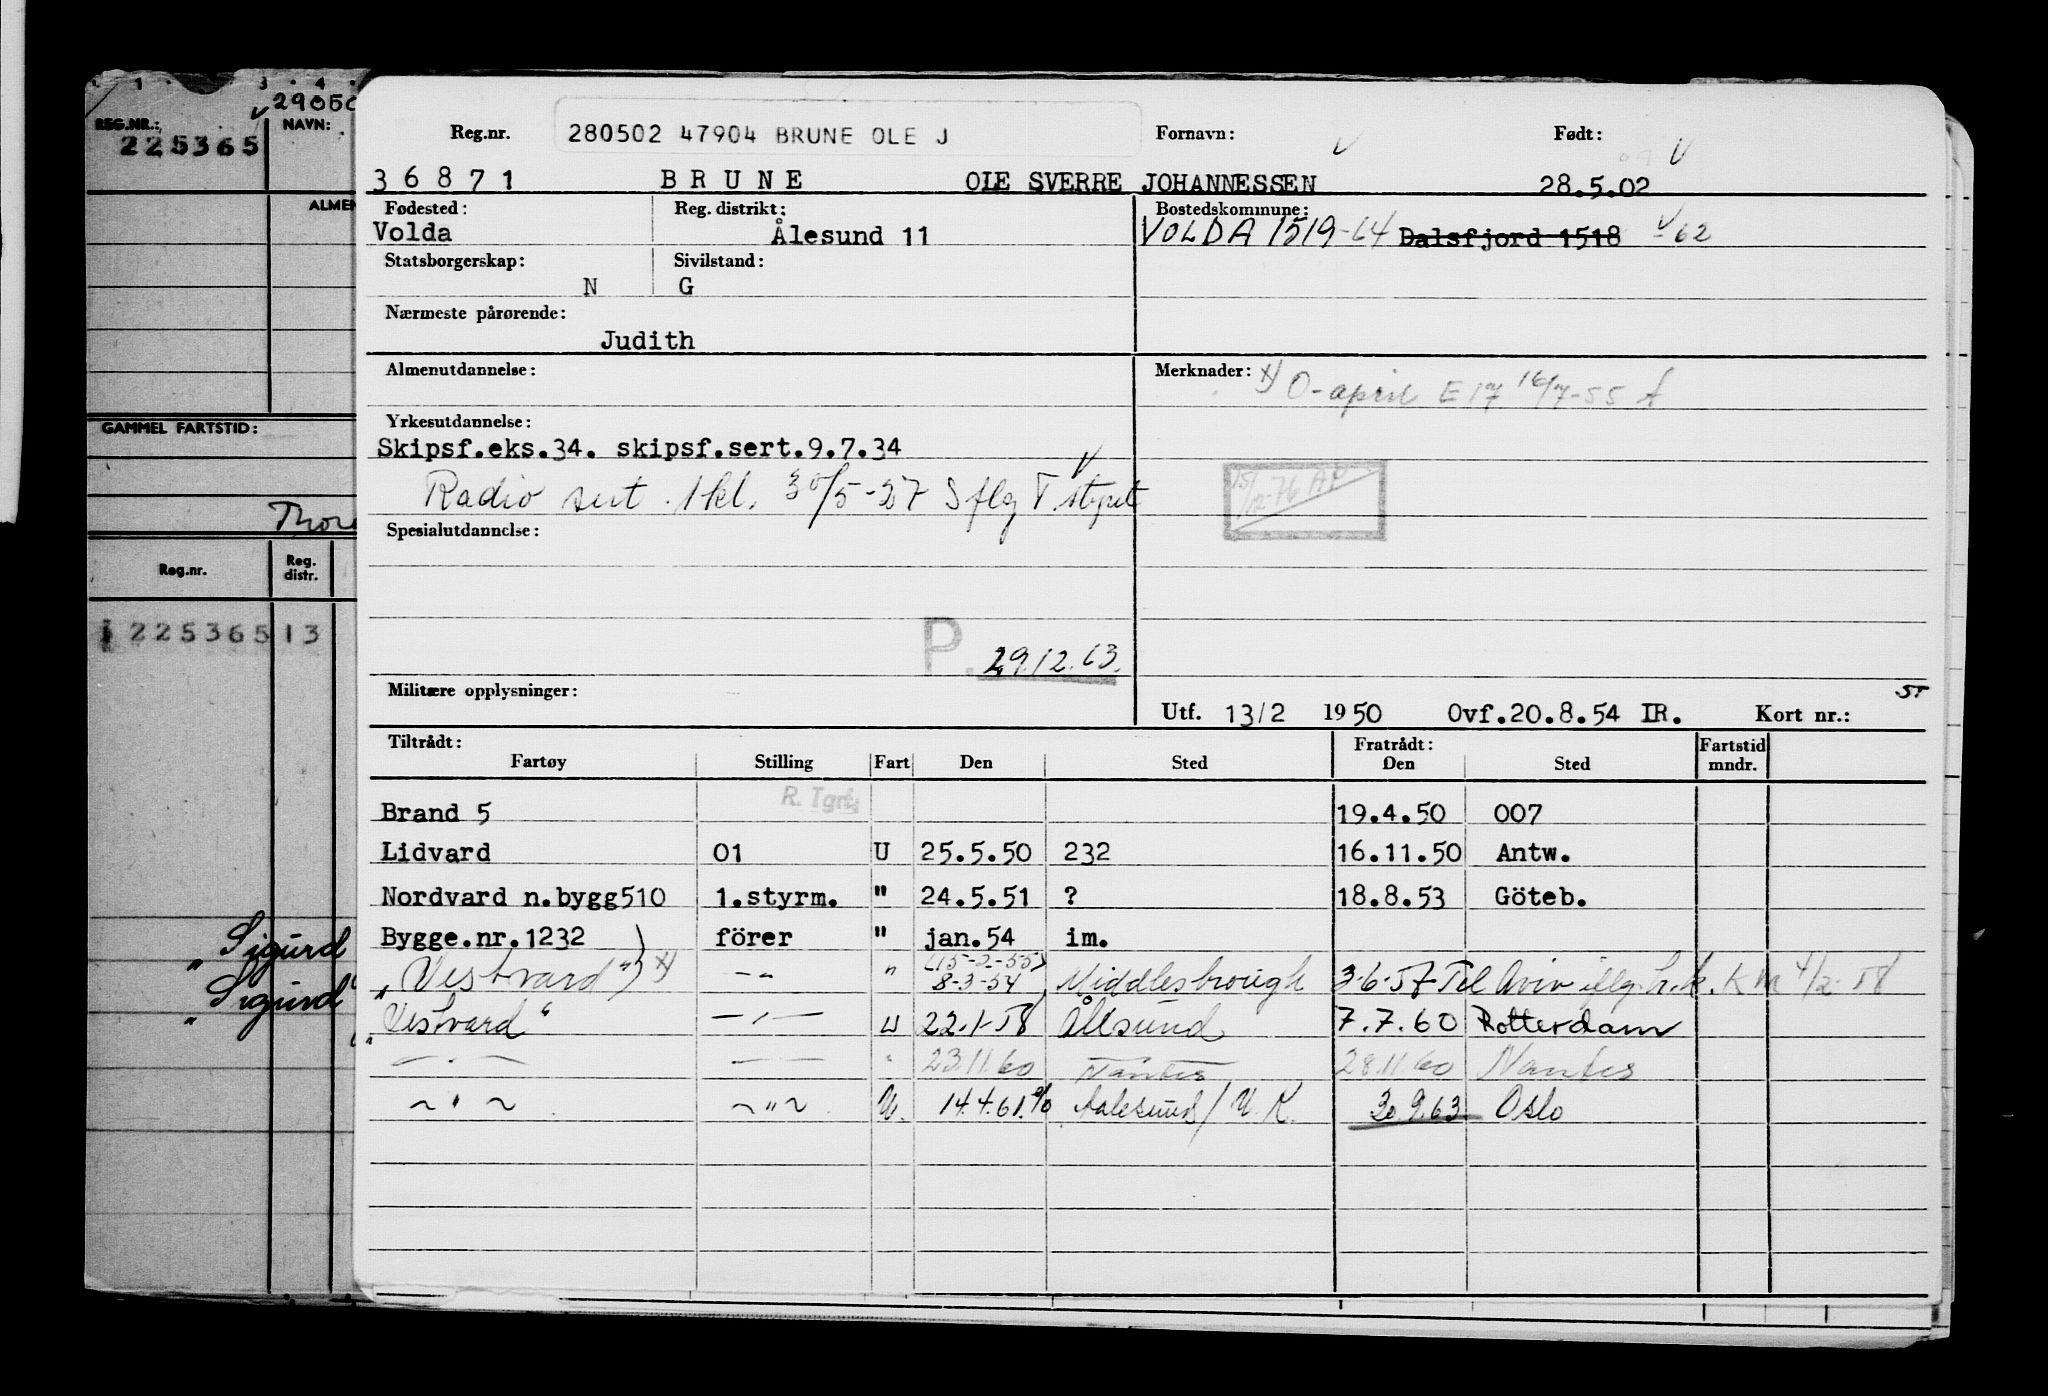 1 3 4
29050
REG.NR.: NAVN:
225365
ALMEN
GAMMEL FARTSTID:
Thor
Reg.nr. Reg. distr.
225365 13
"Sigurd
"Sigurd"
Reg.nr. 280502 47904 BRUNE OLE J Fornavn: Født:
36871 BRUNE OLE SVERRE JOHANNESSEN 28.5.02
Fødested: Reg. distrikt: Bostedskommune:
Volda Ålesund 11 VOLDA 1519-64 Dalsfjord 1518 -62
Statsborgerskap: Sivilstand:
N G
Nærmeste pårørende:
Judith
Almenutdannelse: Merknader: x) O-april E17 16/7-55
Yrkesutdannelse:
Skipsf.eks.34. skipsf.sert.9.7.34
Radio sert. 1kl. 30/5-27 Sflg T.
15/12-76 AP
Spesialutdannelse:
P. 29.12.63.
Militære opplysninger:
ST
Utf. 13/2 1950 Ovf.20.8.54 IR. Kort nr.:
Tiltrådt: Fratrådt: Fartstid
Fartøy Stilling Fart Den Sted Den Sted mndr.
R. Tgrf.
Brand 5 19.4.50 007
Lidvard 01 U 25.5.50 232 16.11.50 Antw.
Nordvard n.bygg510 1.styrm. " 24.5.51 ? 18.8.53 Göteb.
Bygge.nr.1232 ) förer " jan.54 im.
(15-2-55)
"Vestvard") x) -"- " 8-3-54 Middlesbrough 3-6-57 Tel Aviv iflg. h.k. KM 4/2-58
"Vestvard" -"- U 22.1.58 Ålesund 7.7.60 Rotterdam
-"- -"- " 23.11.60 Nantes 28.11.60 Nantes
-"- -"- U. 14.4.61. Aalesund/U.K. 30.9.63 Oslo